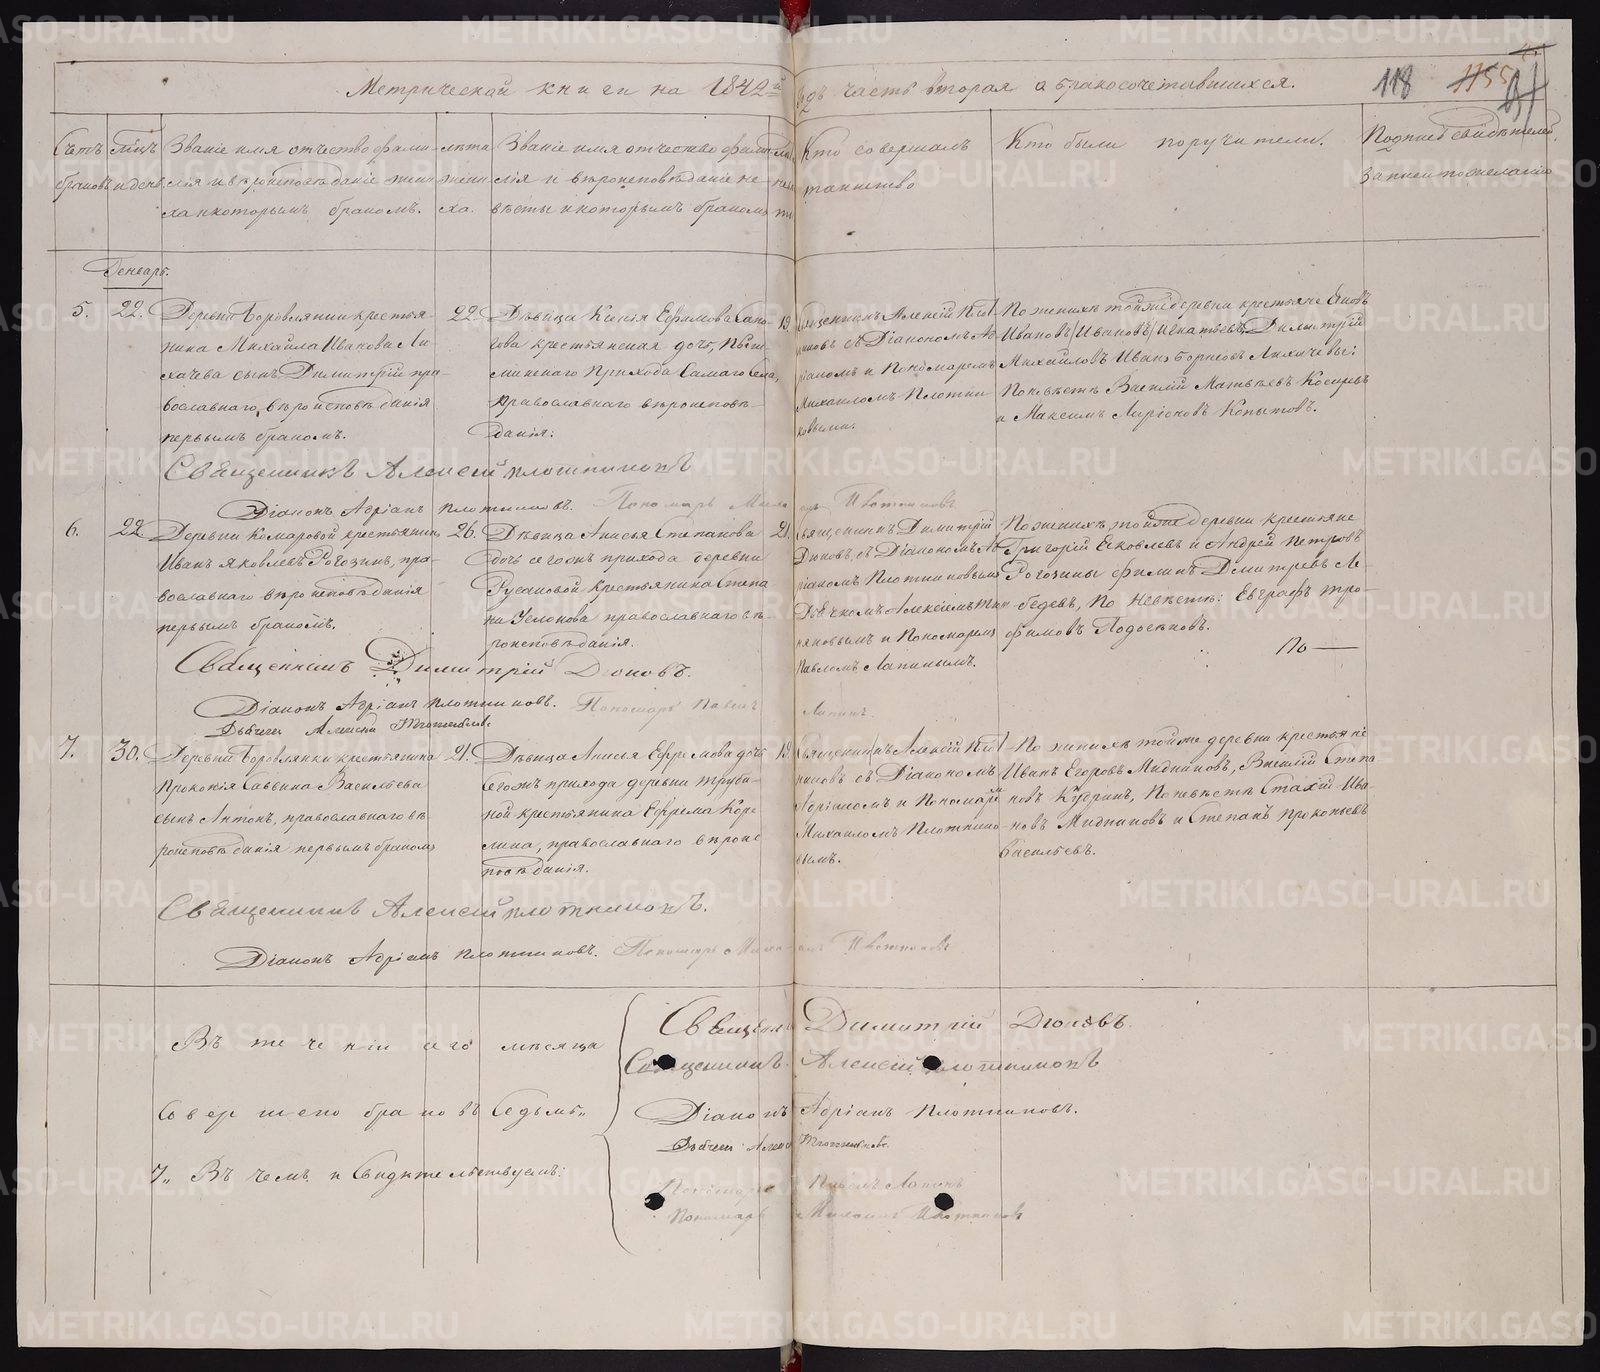 Метрической книги на 1842й годъ часть вторая о бракосочетавшихся.
118 1155
Счетъ браковъ
Мѣсяцъ и день
Званіе имя отчество фами-
лія и вѣроисповѣданіе жени-
ха и которымъ бракомъ.
лѣта
жени
ха.
Званіе имя отчество фами-
лія и вѣроисповѣданіе не-
вѣсты и которымъ бракомъ
Кто совершалъ
таинство
Кто были поручители.
Подписъ свидѣтелей
записи по желанію
Генварь.
5. 22.
Деревни Боровлянки крестья-
нина Михаила Иванова Ли-
хачева сынъ Димитрій пра-
вославнаго вѣроисповѣданія
первымъ бракомъ.
22.
Дѣвица Ксенія Ефимова Сапо-
гова крестьянская дочь, Пыш-
минскаго Прихода Самаго Села,
православнаго вѣроисповѣ-
данія:
19
Священникъ Алексій Плот
никовъ съ Діакономъ Ад
ріаномъ и Пономаремъ
Михаиломъ Плотни
ковыми.
По женихѣ тойже деревни крестьяне Яковъ
Ивановъ, Иванъ Игнатьевъ, Димитрій
Михайловъ Иванъ Борисовъ Лихачевы:
По невѣстѣ Василій Матвѣевъ Косаревъ
и Максимъ Ларіоновъ Копытовъ.
Священникъ Алексій Плотниковъ
Діаконъ Адріанъ Плотниковъ. Пономарь Михаилъ Плотниковъ
6. 22.
Деревни Комаровой крестьянинъ
Иванъ Яковлевъ Рогозинъ, пра-
вославнаго вѣроисповѣданія
первымъ бракомъ.
26.
Дѣвица Анисья Степанова
дочь сегоже прихода деревни
Русаковой крестьянина Степа
на Услонова православнаго вѣ-
роисповѣданія.
21.
Священникъ Димитрій
Діоновъ, съ Діакономъ Ад
ріаномъ Плотниковымъ
Дьячкомъ Алексіемъ Плот
никовымъ и Пономаремъ
Павломъ Лапинымъ.
По женихѣ тойже деревни крестьяне
Григорій Яковлевъ и Андрей Петровъ
Рогозины Филипъ Дмитревъ Ле-
бедевъ, По невѣстѣ: Евграфъ Тро-
фимовъ Подосеновъ.
По —
Священникъ Димитрій Діоновъ.
Діаконъ Адріанъ Плотниковъ. Пономарь Павелъ Лапинъ
Дьячекъ Алексѣй Плотниковъ.
7. 30.
Деревни Боровлянки крестьянина
Прокопія Саввина Васильева
сынъ Антонъ, православнаго вѣ
роисповѣданія первымъ бракомъ
21.
Дѣвица Анисья Ефремова дочь
сегожъ прихода деревни Труби-
ной крестьянина Ефрема Коре
лина, православнаго вѣроис
повѣданія.
19
Священникъ Алексій Плот
никовъ съ Діакономъ
Адріаномъ и Пономаремъ
Михаиломъ Плотнико
вымъ.
По женихѣ тойже деревни крестьяне
Иванъ Егоровъ Мидниковъ, Василій Степа
новъ Кудринъ, По невѣстѣ Стахій Ива-
новъ Мидниковъ и Степанъ Прокопьевъ
Васильевъ.
Священникъ Алексій Плотниковъ.
Діаконъ Адріанъ Плотниковъ. Пономарь Михаилъ Плотниковъ
Въ теченіи сего мѣсяца
Совершено браковъ Седьмь„
7„ Въ чемъ и Свидѣтельствуемъ:
Священникъ Димитрій Діоновъ.
Священникъ Алексій Плотниковъ
Діаконъ Адріанъ Плотниковъ.
Дьячекъ Алексѣй Плотниковъ.
Пономарь Павелъ Лапинъ
Пономарь Михаилъ Плотниковъ
METRIKI.GASO-URAL.RU